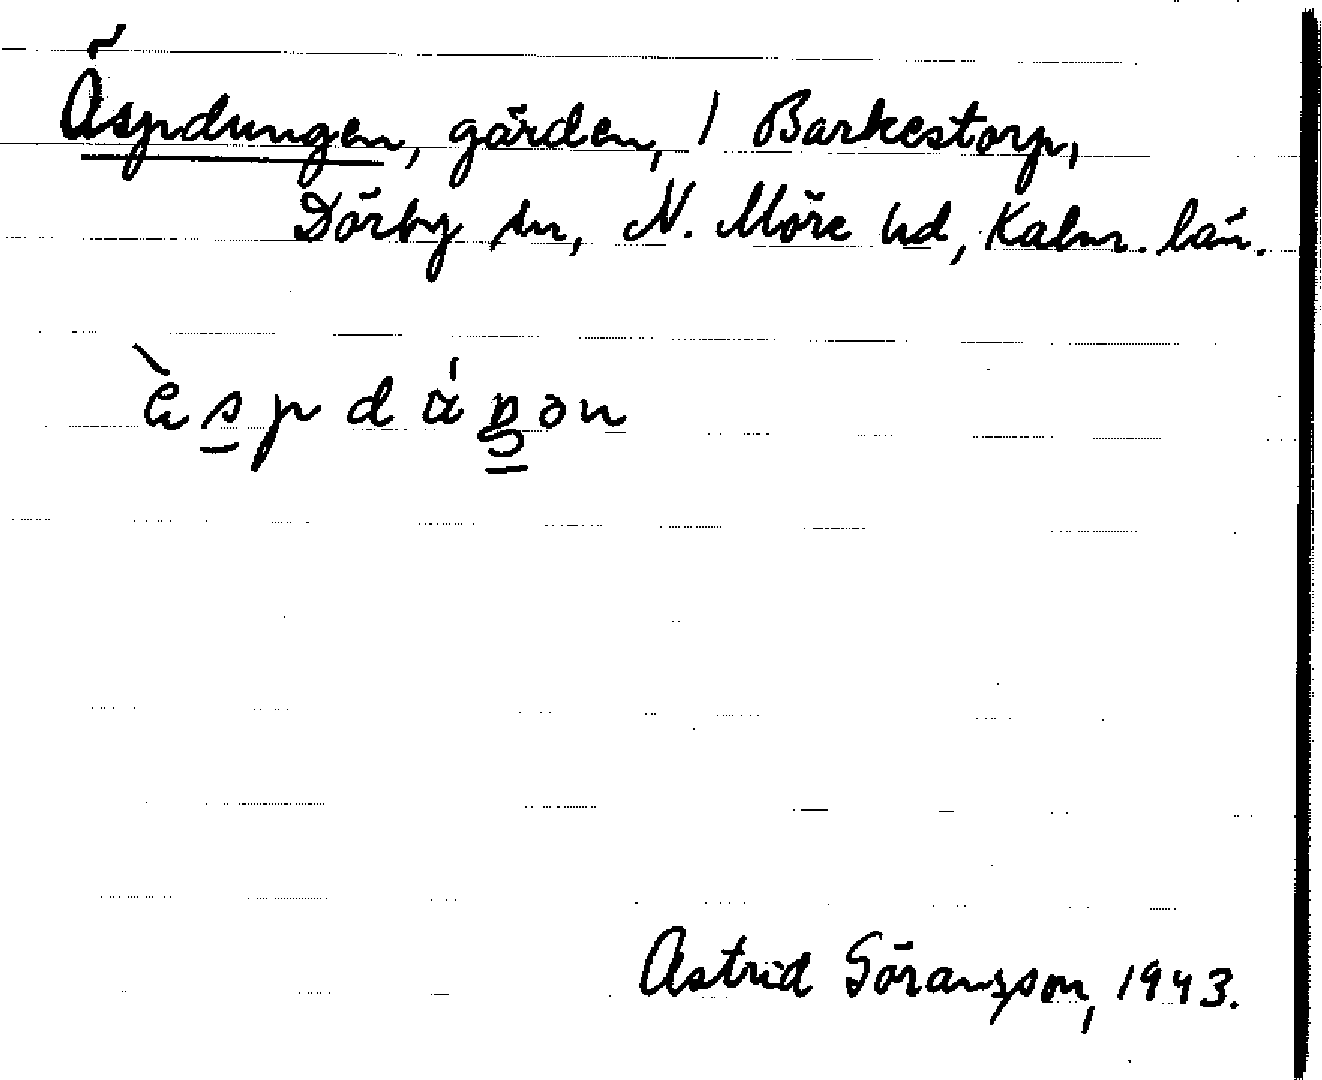 Äspdungen, gärden, 1 Barkestorp,
Dörby sn, N. Möre hd, Kalm. län.
Astrid Göransson, 1943.